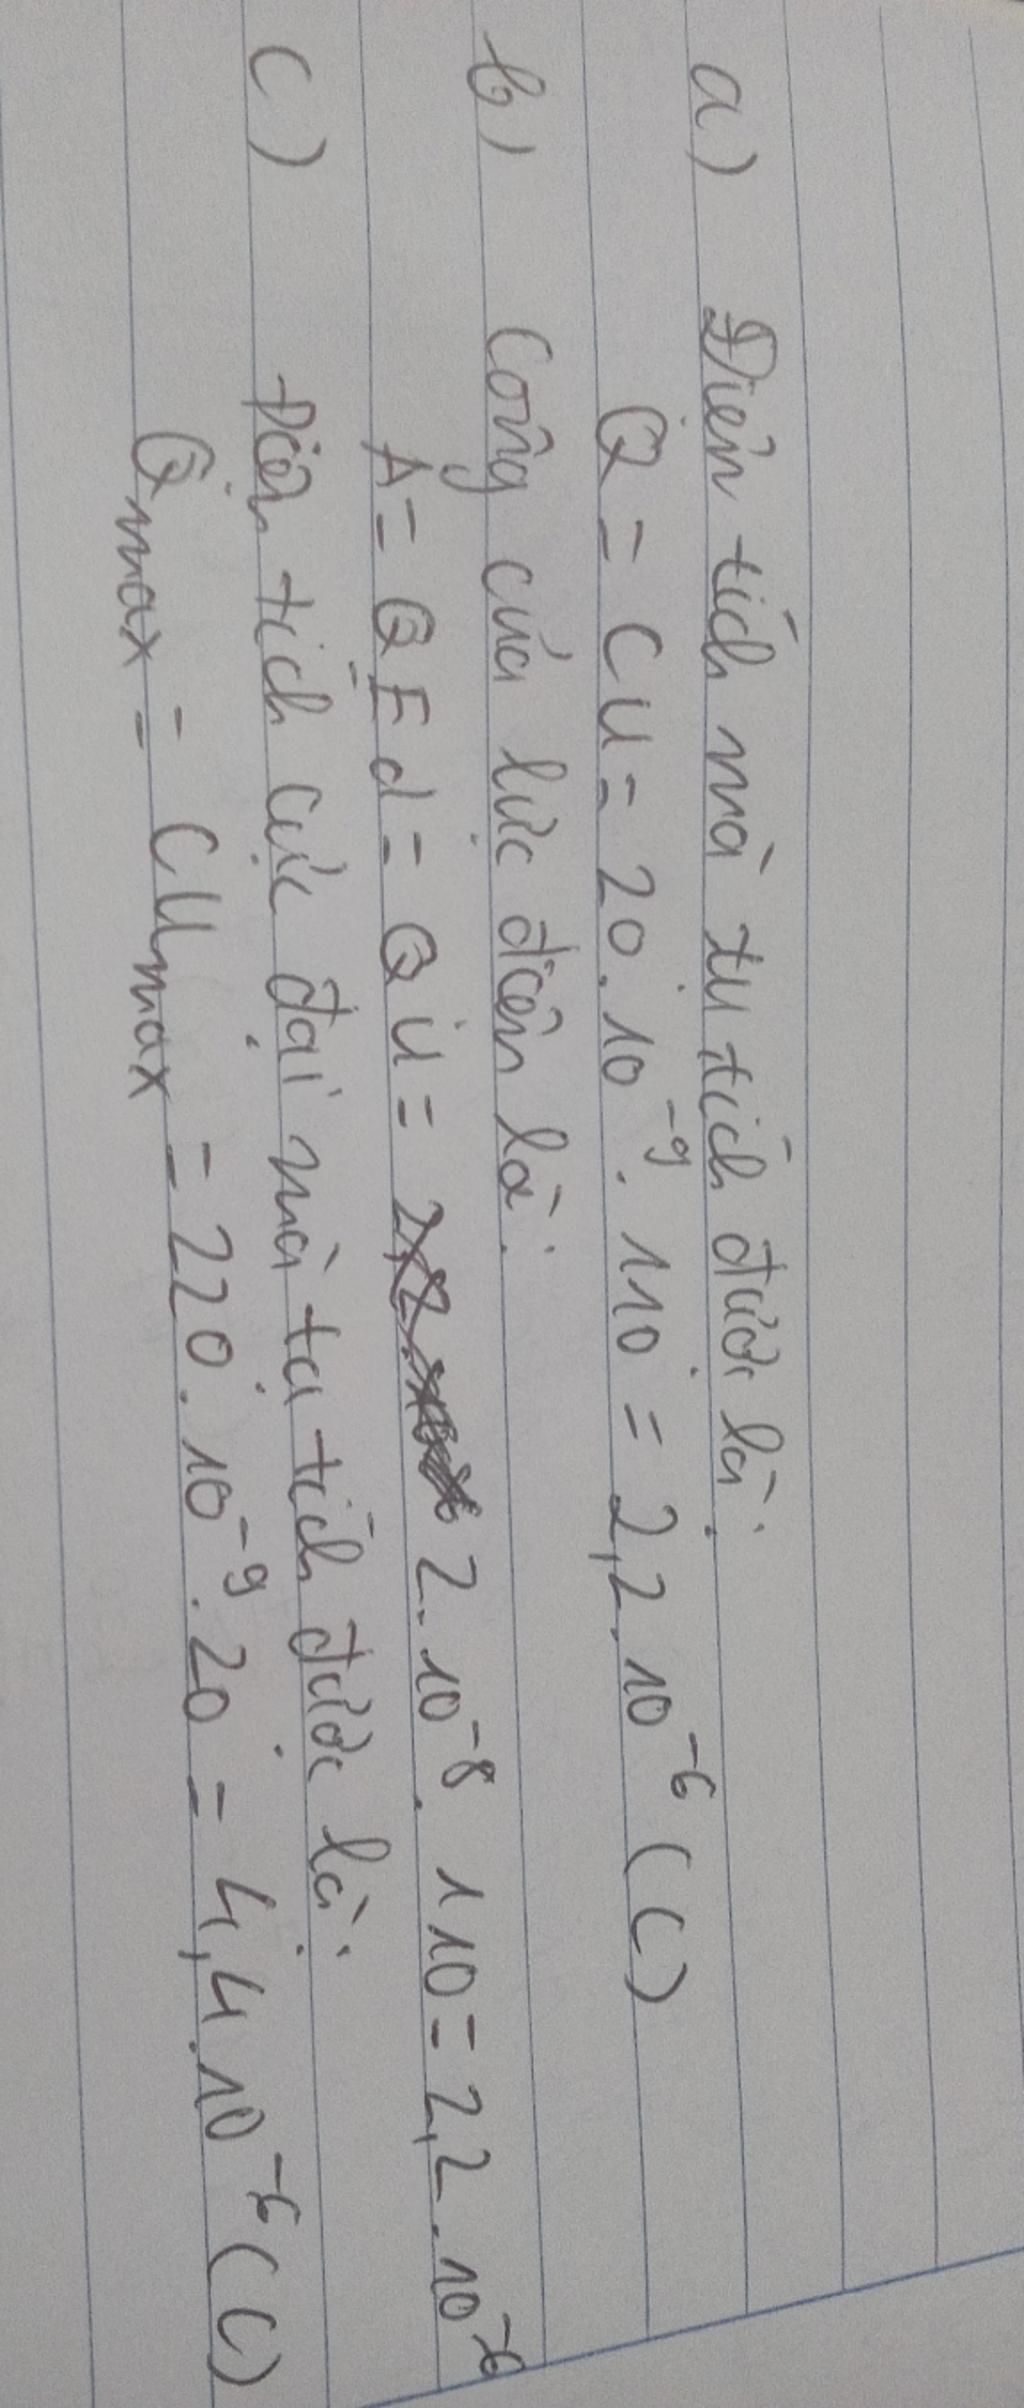 a) Điện tích mà tụ tích được là:
Q = CU = 20.10⁻⁹. 110 = 2,2.10⁻⁶ (C)
b) Công của lực điện là:
A = QEd = QU = 2.10⁻⁸. 110 = 2,2.10⁻⁶
c) Điện tích cực đại mà tụ tích được là:
Qmax = CUmax = 220.10⁻⁹.20 = 4,4.10⁻⁶ (C)